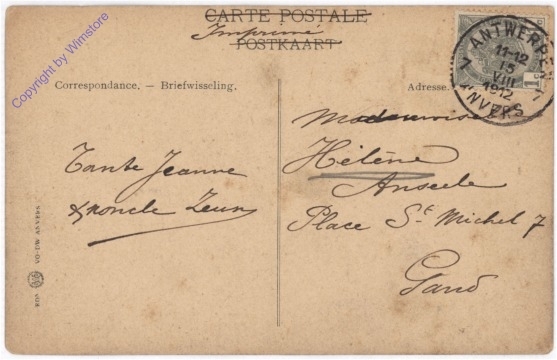 CARTE POSTALE
Imprimé
POSTKAART
Copyright by Wimstore
ANTWERPEN 1
11-12
15
VIII
1912
ANVERS
1c
Correspondance. — Briefwisseling.
Adresse.
Tante Jeanne
& noncle
Mademoiselle
Hélène
Anseele
Place St Michel 7
Gand
VO-DW ANVERS